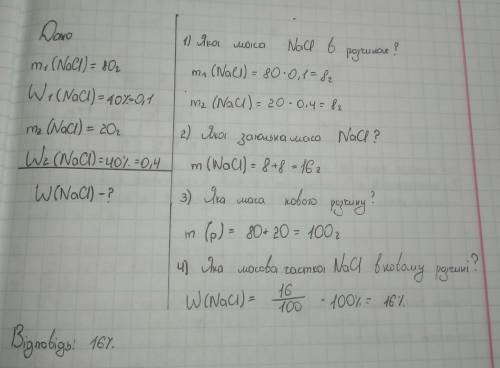 Дано
m₁(NaCl) = 80г
W₁(NaCl)=10%=0,1
m₂(NaCl) = 20г
W₂(NaCl)=40%=0,4
W(NaCl)-?
1) Яка маса NaCl в розчинах?
m₁(NaCl) = 80·0,1=8г
m₂(NaCl) = 20·0,4=8г
2) Яка загальна маса NaCl?
m(NaCl) = 8+8=16г
3) Яка маса нового розчину?
m(р)= 80+20 = 100г
4) Яка масова частка NaCl в новому розчині?
W(NaCl) = 16/100 · 100% = 16%
Відповідь: 16%.